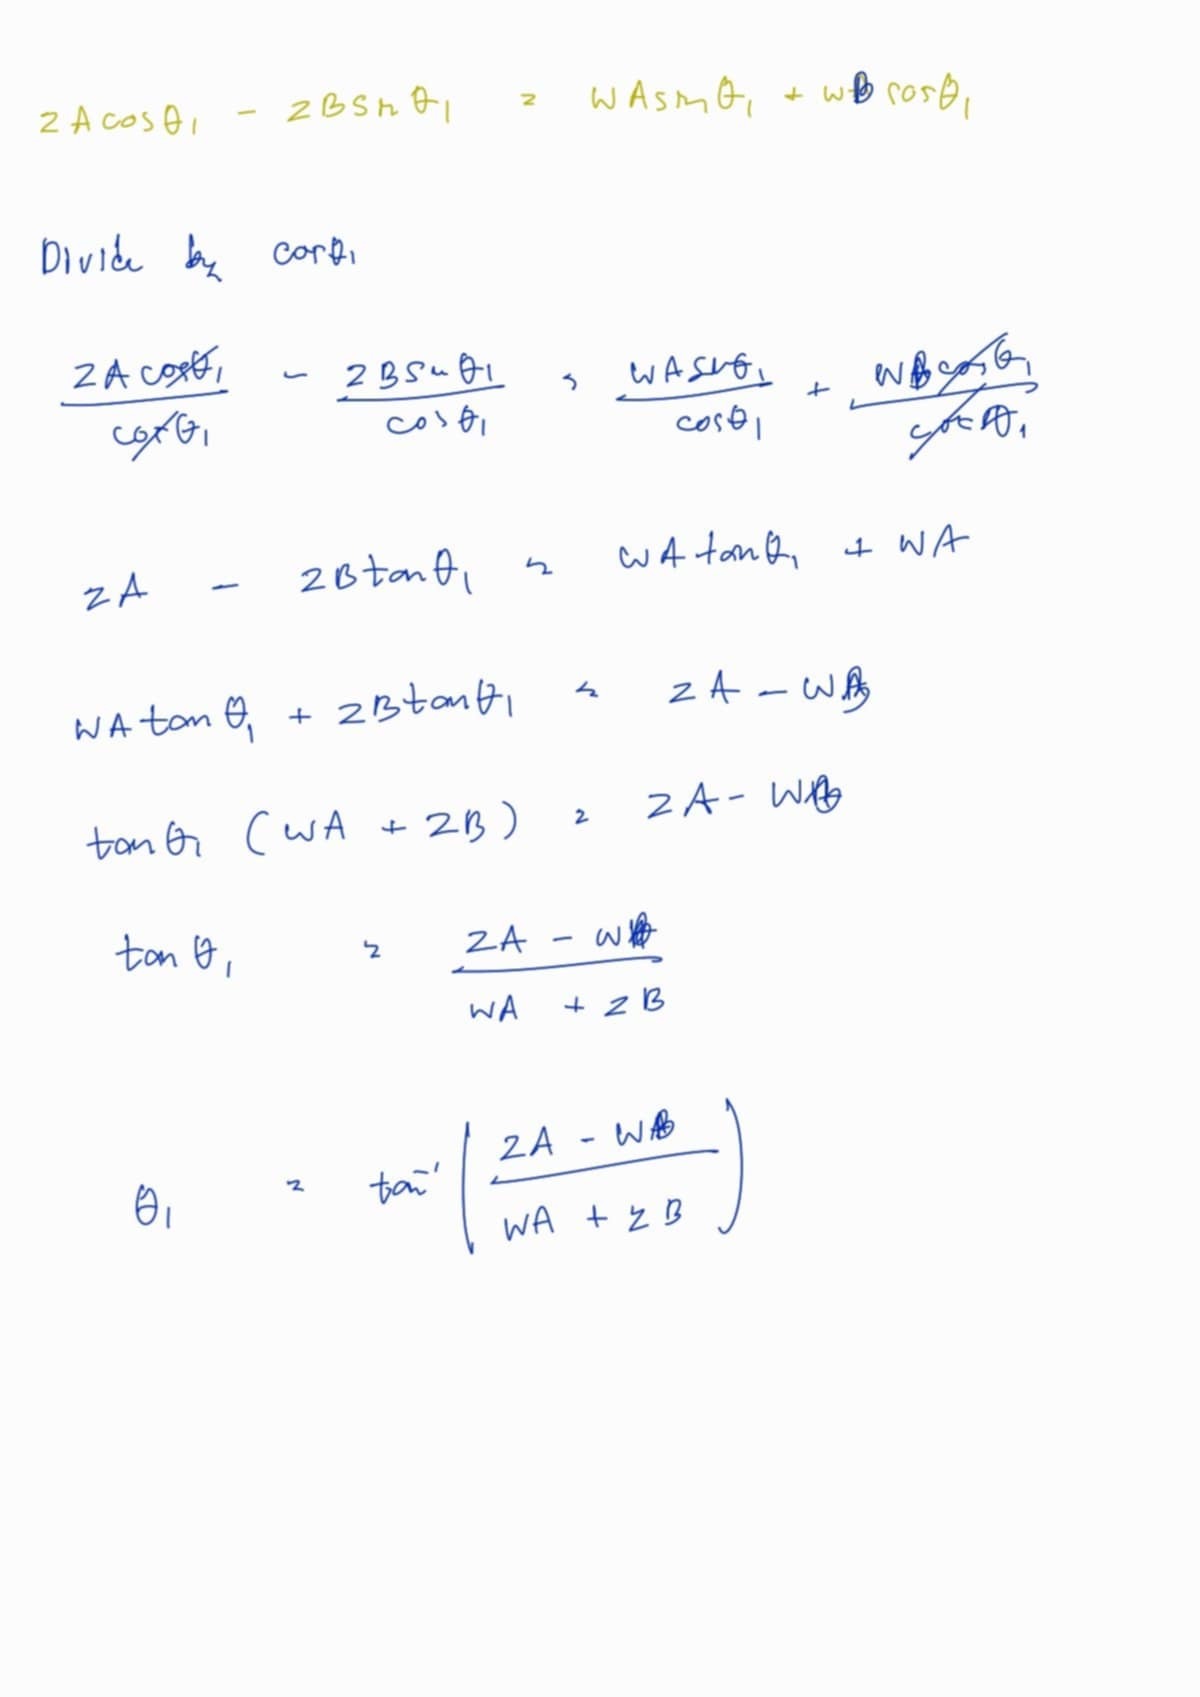 zAcosθ₁ - zBsinθ₁ = wAsinθ₁ + wBcosθ₁
Divide by cosθ₁
zAcosθ₁/cosθ₁ - zBsinθ₁/cosθ₁ = wAsinθ₁/cosθ₁ + wBcosθ₁/cosθ₁
zA - zBtanθ₁ = wAtanθ₁ + wA
wAtanθ₁ + zBtanθ₁ = zA - wB
tanθ₁ (wA + zB) = zA - wB
tanθ₁ = zA - wB / wA + zB
θ₁ = tan⁻¹ (zA - wB / wA + zB)